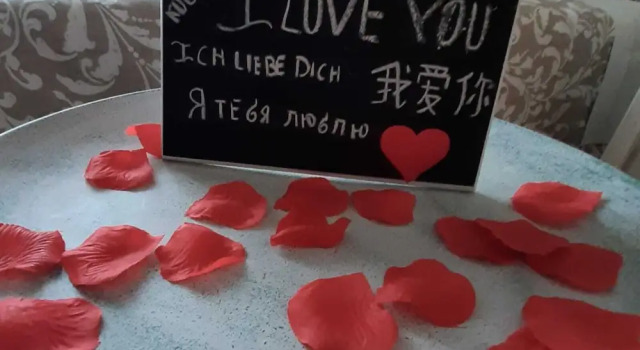 I LOVE YOU
ICH LIEBE DICH
我爱你
Я ТЕБЯ ЛЮБЛЮ